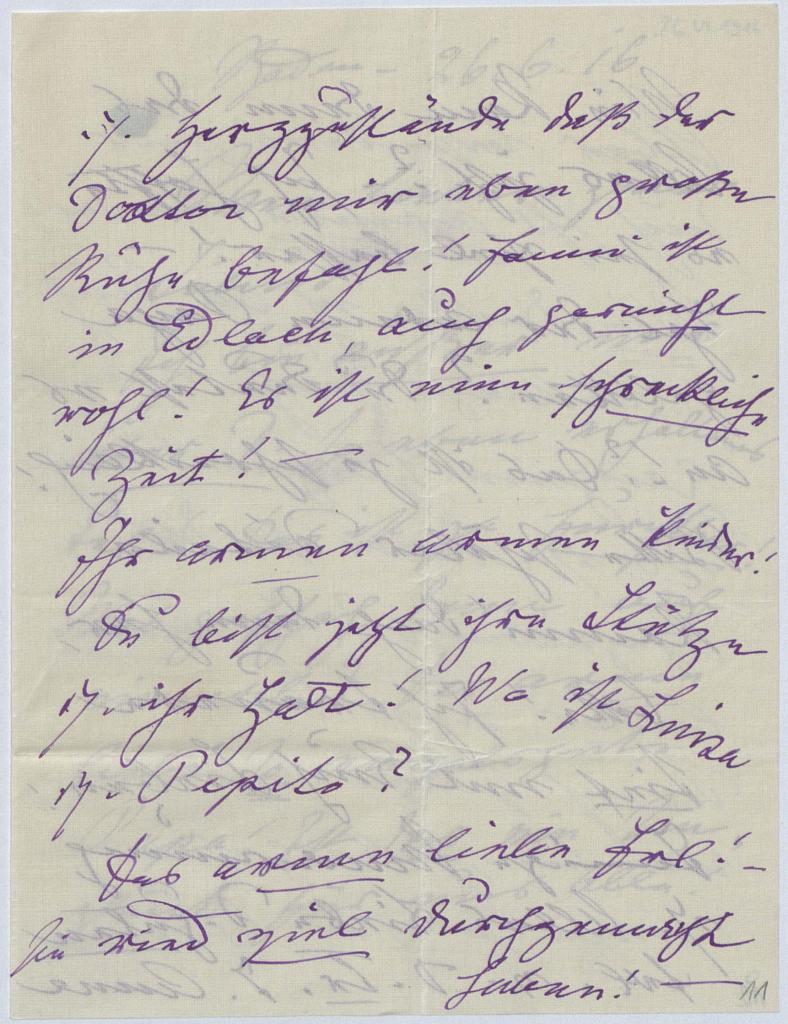 u. Herzzustände daß der
Doktor mir eben große
Ruhe befahl! Fanni ist
in Edlach, auch garnicht
wohl! Es ist eine schreckliche
Zeit! —
Ihr armen armen Kinder!
Du bist jetzt ihre Stütze
u. ihr Halt! Wo ist Luise
u. Pepito?
Das arme liebe Frl.! —
sie wird viel durchgemacht
haben! —
11